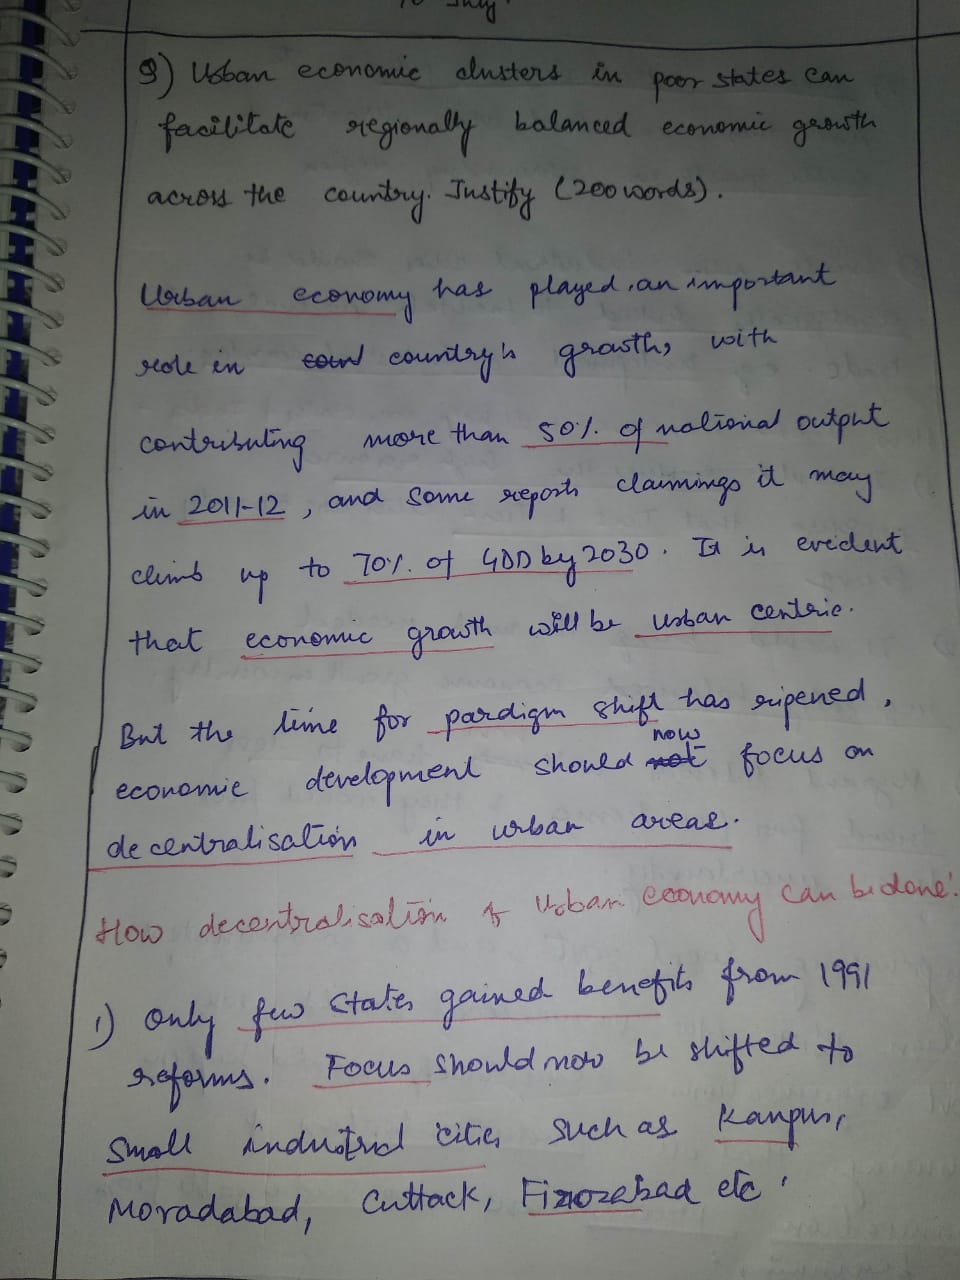 July
9) Urban economic clusters in poor states can
facilitate regionally balanced economic growth
across the country. Justify (200 words).
Urban economy has played an important
role in country's growth, with
contributing more than 50% of national output
in 2011-12, and some reports claimings it may
climb up to 70% of GDD by 2030. It is evident
that economic growth will be urban centric.
But the time for pardigm shift has ripened,
now
economic development should focus on
decentralisation in urban areas.
How decentralisation of Urban economy can be done?
1) Only few states gained benefits from 1991
reforms. Focus should now be shifted to
small industrial cities such as Kanpur,
Moradabad, Cuttack, Firozabad etc.